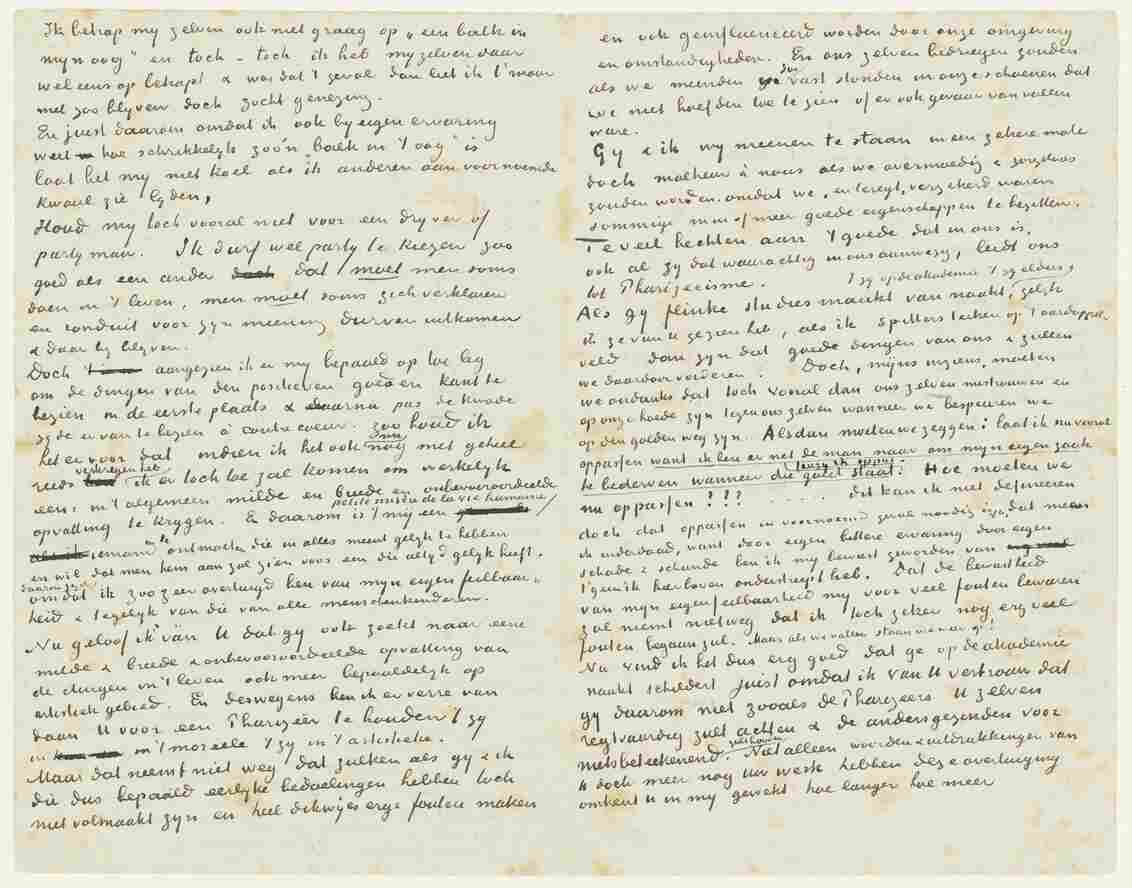 Ik betrap my zelven ook niet graag op „een balk in
myn oog” en toch – toch ik heb myzelven daar
wel eens op betrapt & was dat 't geval dan liet ik 't maar
niet zoo blyven doch zocht genezing.
En juist daarom omdat ik ook by eigen ervaring
weet hoe schrikkelyk zoo'n „balk in 't oog” is
laat het my niet koel als ik anderen aan voornoemde
kwaal zie lyden,
Houd my toch vooral niet voor een dryver of
partyman. Ik durf wel party te kiezen zoo
goed als een ander dat moet men soms
doen in 't leven, men moet soms zich verklaren
en conduit voor zyn meening durven uitkomen
& daar by blyven.
Doch aangezien ik er my bepaald op toe leg
om de dingen van den positieven goeden kant te
bezien in de eerste plaats & daarna pas de kwade
zyde er van te bezien à contre coeur. zoo houd ik
het er voor dat indien ik het ook nu nog niet geheel
reeds verkregen heb ik er toch toe zal komen om werkelyk
eene in 't algemeen milde en breede en onbevooroordeelde
opvatting te krygen. En daarom is 't my een petite misère de la vie humaine
iemand te ontmoeten die in alles meent gelyk te hebben
en wil dat men hem aan zal zien voor een die altyd gelyk heeft.
daarom juist omdat ik zoo zeer overtuigd ben van myn eigen feilbaar-
heid & tegelyk van die van alle menschenkinderen.
Nu geloof ik van U dat gy ook zoekt naar eene
milde & breede & onbevooroordeelde opvatting van
de dingen in 't leven ook meer bepaaldelyk op
artistiek gebied. En deswegens ben ik er verre van
daan U voor een Pharizeër te houden 't zy
in 't moreele 't zy in 't artistieke.
Maar dat neemt niet weg dat zulken als gy & ik
die dus bepaald eerlyke bedoelingen hebben toch
niet volmaakt zyn en heel dikwyls erge fouten maken
en ook geinfluenceerd worden door onze omgeving
en omstandigheden. En ons zelven bedriegen zouden
als we meenden zoo vast stonden in onze schoenen dat
we niet hoefden toe te zien of er ook gevaar van vallen
ware.
Gy & ik wy meenen te staan in een zekere mate
doch malheur à nous als we overmoedig & zorgeloos
zouden worden omdat we, en teregt, verzekerd waren
sommige min of meer goede eigenschappen te bezitten.
Te veel hechten aan 't goede dat in ons is,
ook al zy dat waarachtig in ons aanwezig, leidt ons
tot Pharizeeisme.
Als gy flinke studies maakt van naakt, 't zy op de akademie 't zy elders, gelyk
ik ze van U gezien heb, als ik spitters teeken op 't aardappel-
veld dan zyn dat goede dingen van ons & zullen
we daardoor vorderen. Doch, mijns inziens, moeten
we ondanks dat toch vooral dan ons zelven mistrouwen en
op onze hoede zyn tegen ons zelven wanneer we bespeuren we
op den goeden weg zyn. Alsdan moeten we zeggen: laat ik nu vooral
oppassen want ik ben er net de man naar om myn eigen zaak
te bederven wanneer die goed staat: tenzy ik oppas. Hoe moeten we
nu oppassen??? ..... dit kan ik niet defineeren
doch dat oppassen in voornoemd geval noodig is, dat meen
ik inderdaad, want door eigen bittere ervaring door eigen
schade & schande ben ik my bewust geworden van
't geen ik hierboven onderstreept heb. Dat de bewustheid
van myn eigen feilbaarheid my voor veel fouten bewaren
zal neemt niet weg dat ik toch zeker nog erg veel
fouten begaan zal. Maar als we vallen staan we weer op!
Nu vind ik het dus erg goed dat ge op de akademie
naakt schildert juist omdat ik van U vertrouw dat
gy daarom niet zooals de Pharizeers U zelven
regtvaardig zult achten & de andersgezinden voor
nietsbeteekenend. Niet alleen woorden & uitdrukkingen van
U doch meer nog Uw werk hebben deze overtuiging
omtrent U in my gewekt hoe langer hoe meer